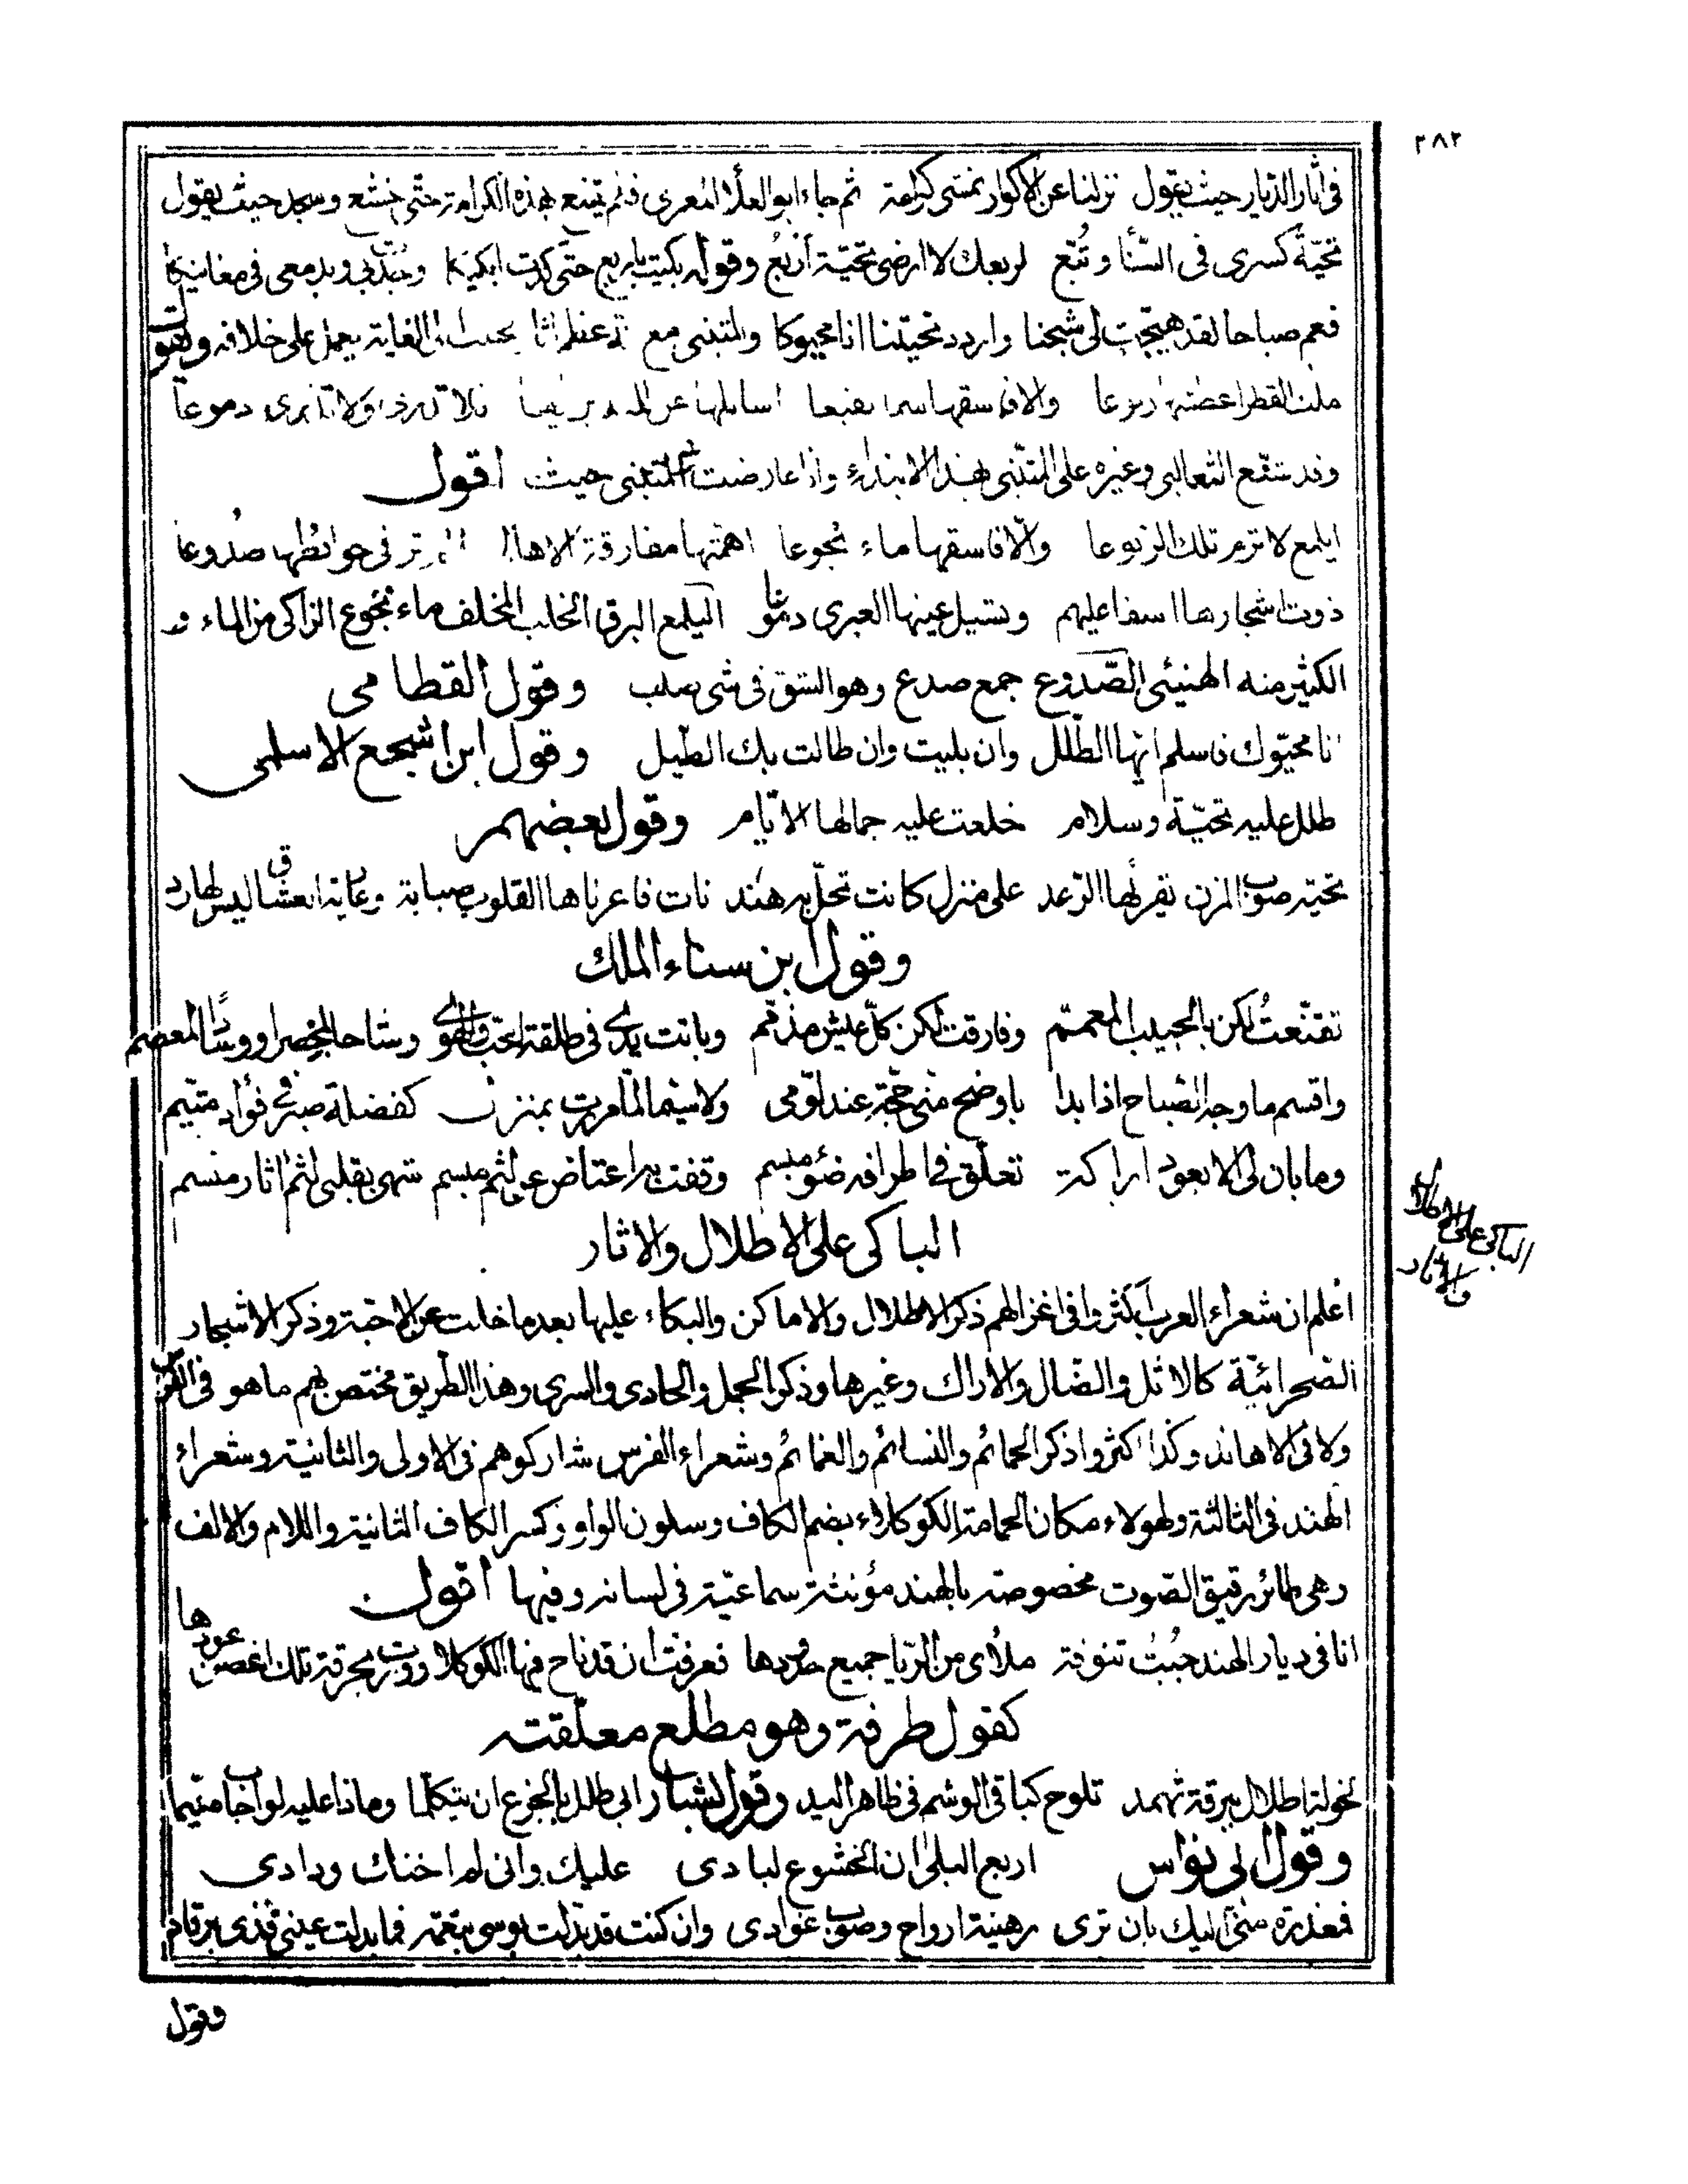 ٢٨٢
في آثار الديار حيث يقول نزلنا عن الاكوار نمشى كرامة ثم جاء ابو العلاء المعرى فلم يقنع بهذه الكرامة حتى خشع وسجد حيث يقول
تحيّة كسرى في السّنا وتُبّع لربعك لا ارضى تحيّة اربُع وقوله بكيت يا ربع حتى كدت ابكيكا وجدت بى وبدمعى فى مغانيكا
فعم صباحا لقد هيّجت لى شجنا واردد تحيّتنا انا محيوكا والمتنبى مع يعمل على خلافه ويقول
ملث القطر اعطشها ربوعا والا فاسقها السم النقيعا اسائلها عن فلا تدرى ولا تذرى دموعا
وقد شنّع الثعالبى وغيره على المتنّبى بهذا الابتداء وانا عارضت المتنبى حيث اقول
ايلمع لا ترم تلك الربوعا والّا فاسقها ماء نجوعا اهمّتها مفارقة الاهالى الم تر فى حوائطها صُدُوعا
ذوت اشجارها اسفا عليهم وتسيل عينها العبرى دموعا اليلمع البرق الخلب المخلف ماء نجوع الزاكى من الماء وقد
الكثير منه الهنيئى الصّدوع جمع صدع وهو الشق فى شى صلب وقول القطامى
انا محيّوك فاسلم ايّها الطّلل وان بليت وان طالت بك الطّيل وقول ابن اشجع الاسلمى
طلل عليه تحيّة وسلام خلعت عليه جمالها الايّام وقول بعضهم
تحيّة صوب المزن يقرئها الرّعد على منزل كانت تحلّ به هند نات فاعرناها القلوب صبابة وعارية العشاق ليس لها رد
وقول ابن سناء الملك
تقنّعت لكن بالحبيب المعمّم وفارقت لكن كلّ عيش مذمّم وباتت يدى فى طاعة الحب والهوى وشاحا لخصر او سوارا لمعصم
واقسم ما وجه الصّباح اذا بدا باوضح منى حجّة عند لوّمى ولا سيّما لمّا مررت بمنزل كفضلة صبر فى فؤاد متيّم
وما بان لى الا بعود اراكة تعلّق فى اطرافه ضوء مبسم وقفت به اعتاض عن لثم مبسم شهىّ بقلبى لثم آثار منسم
الباكى على الاطلال والاثار
الباكى على الاطلال والاثار
اعلم ان شعراء العرب اكثروا فى اغزالهم ذكر الاطلال والاماكن والبكاء عليها بعد ما خلت عن الاحبّة وذكر الاشجار
الصّحرائيّة كالاثل والضّال والاراك وغيرها وذكر الجمل والحادى والسرى وهذا الطريق مختص بهم ما هو فى الفرس
ولا فى الاهاند وكذا اكثروا ذكر الحمائم والنسائم والغمائم وشعراء الفرس شاركوهم فى الاولى والثانية وشعراء
الهند فى الثالثة ولهولاء مكان الحمامة الكوكلاء بضم الكاف وسكون الواو وكسر الكاف الثانية واللام والالف
وهى طائر رقيق الصّوت مخصوصة بالهند مؤنثة سماعيّة فى لسانه وفيها اقول
انا فى ديار الهند جُبْتُ تنوفة ملأى من الريّا جميع حدودها فعرفت ان قد ناح فيها الكوكلا وروت بحرقة تلك اغصن عودها
كقول طرفة وهو مطلع معلّقته
لخولة اطلال ببرقة ثهمد تلوح كباقى الوشم فى ظاهر اليد وقول بشار ابى طلل بالجزع ان يتكلّما وماذا عليه لو اجاب متيّما
وقول ابى نواس اربع البلى ان الخشوع لبادى عليك وانى لم اخنك ودادى
فمعذرة منّى اليك بان ترى رهينة ارواح وصوب غوادى وان كنت قد بدّلت بوسى بنعمة فما بدلت عينى قذى برقاد
وقول